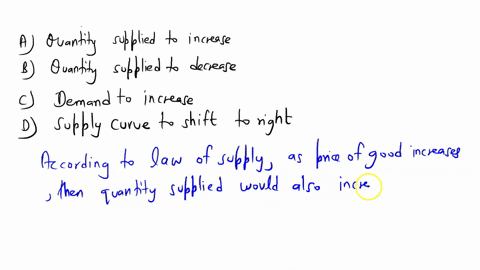 A) Quantity supplied to increase
B) Quantity supplied to decrease
C) Demand to increase
D) Supply curve to shift to right
According to law of supply, as price of good increases
, then quantity supplied would also incre